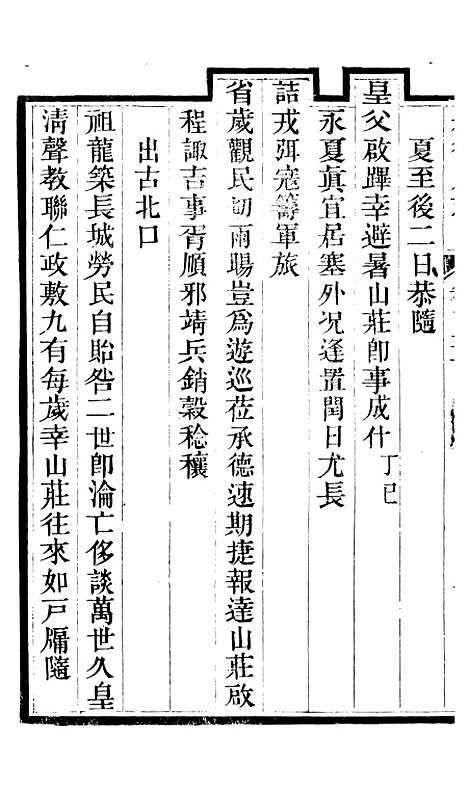 夏至後二日恭隨
皇父啟蹕幸避暑山莊卽事成什 丁巳
永夏眞宜居塞外況逢置閏日尤長
詰戎弭寇籌軍旅
省歲觀民切雨暘豈爲遊巡莅承德速期捷報達山莊啟
程諏吉事胥順邪靖兵銷穀稔穰
出古北口
祖龍築長城勞民自貽咎二世卽淪亡侈談萬世久皇
淸聲教聯仁政敷九有每歲幸山莊往來如戸牖隨